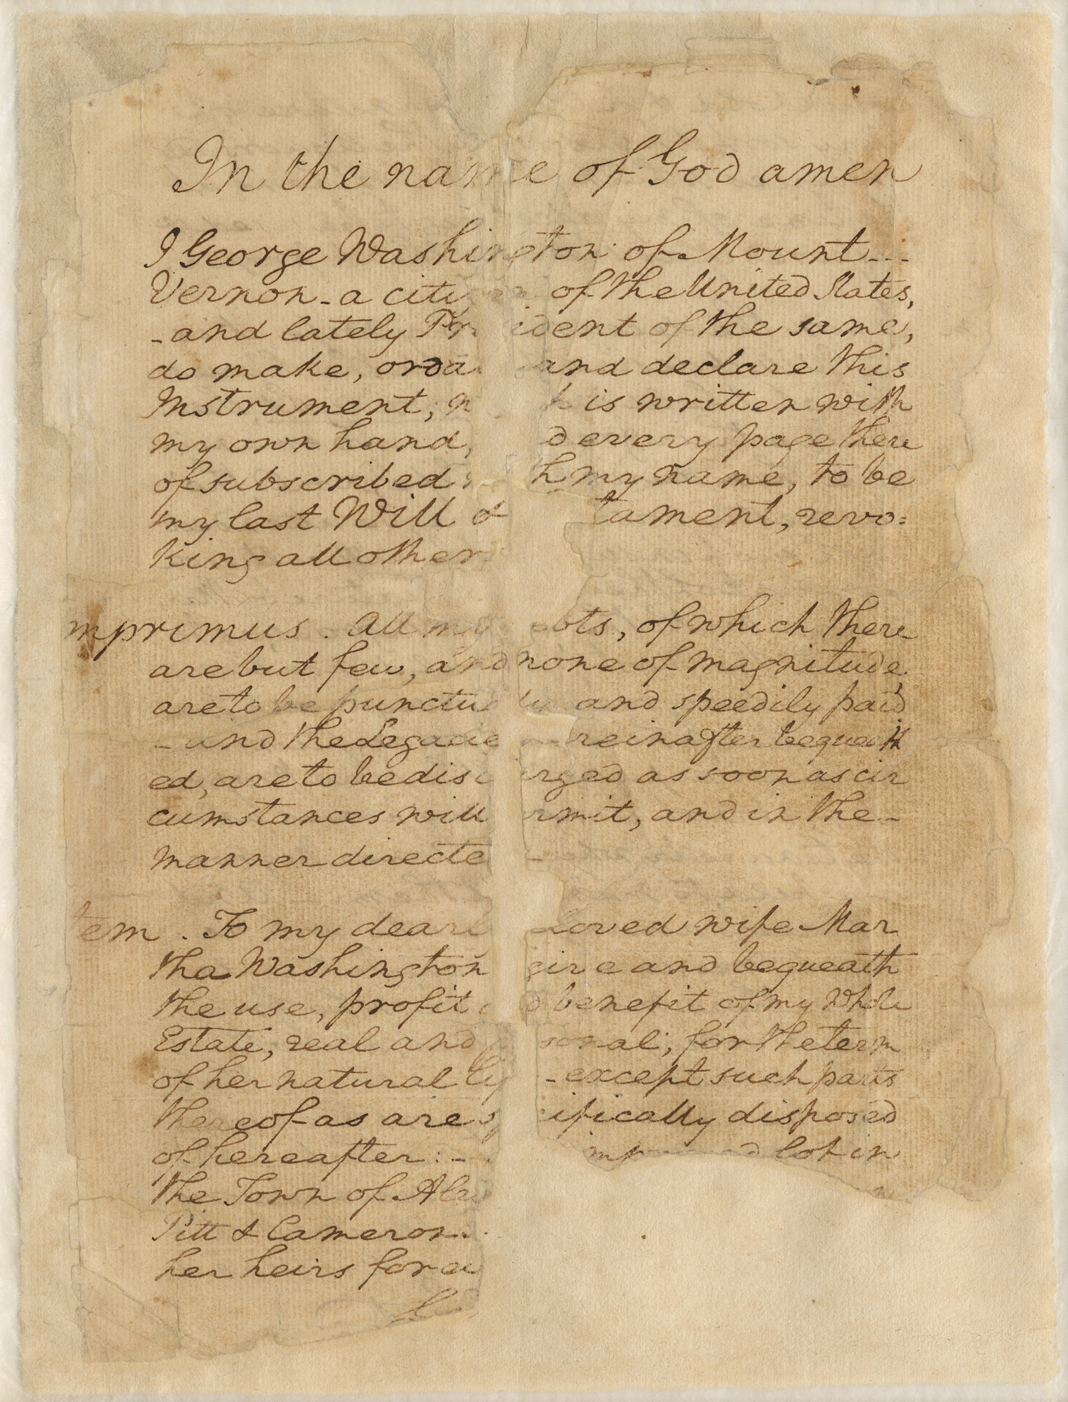 In the name of God amen
I George Washington of Mount
Vernon - a citi of the United States,
- and lately Pr ident of the same,
do make, orda and declare this
Instrument, w h is written with
my own hand, d every page there
of subscribed h my name, to be
my last Will & tament, revo=
king all other
mprimus. All my bts, of which there
are but few, and none of magnitude,
are to be punctu ly and speedily paid
- and the Legacie reinafter bequeath
ed, are to be disc arged as soon as cir
cumstances will rmit, and in the -
manner directe
tem. To my dearl loved wife Mar
tha Washington give and bequeath
the use, profit d benefit of my whole
Estate, real and sonal, for the term
of her natural li - except such parts
thereof as are sp cifically disposed
of hereafter: - imp d lot in
the Town of Alex
Pitt & Cameron.
her heirs for e